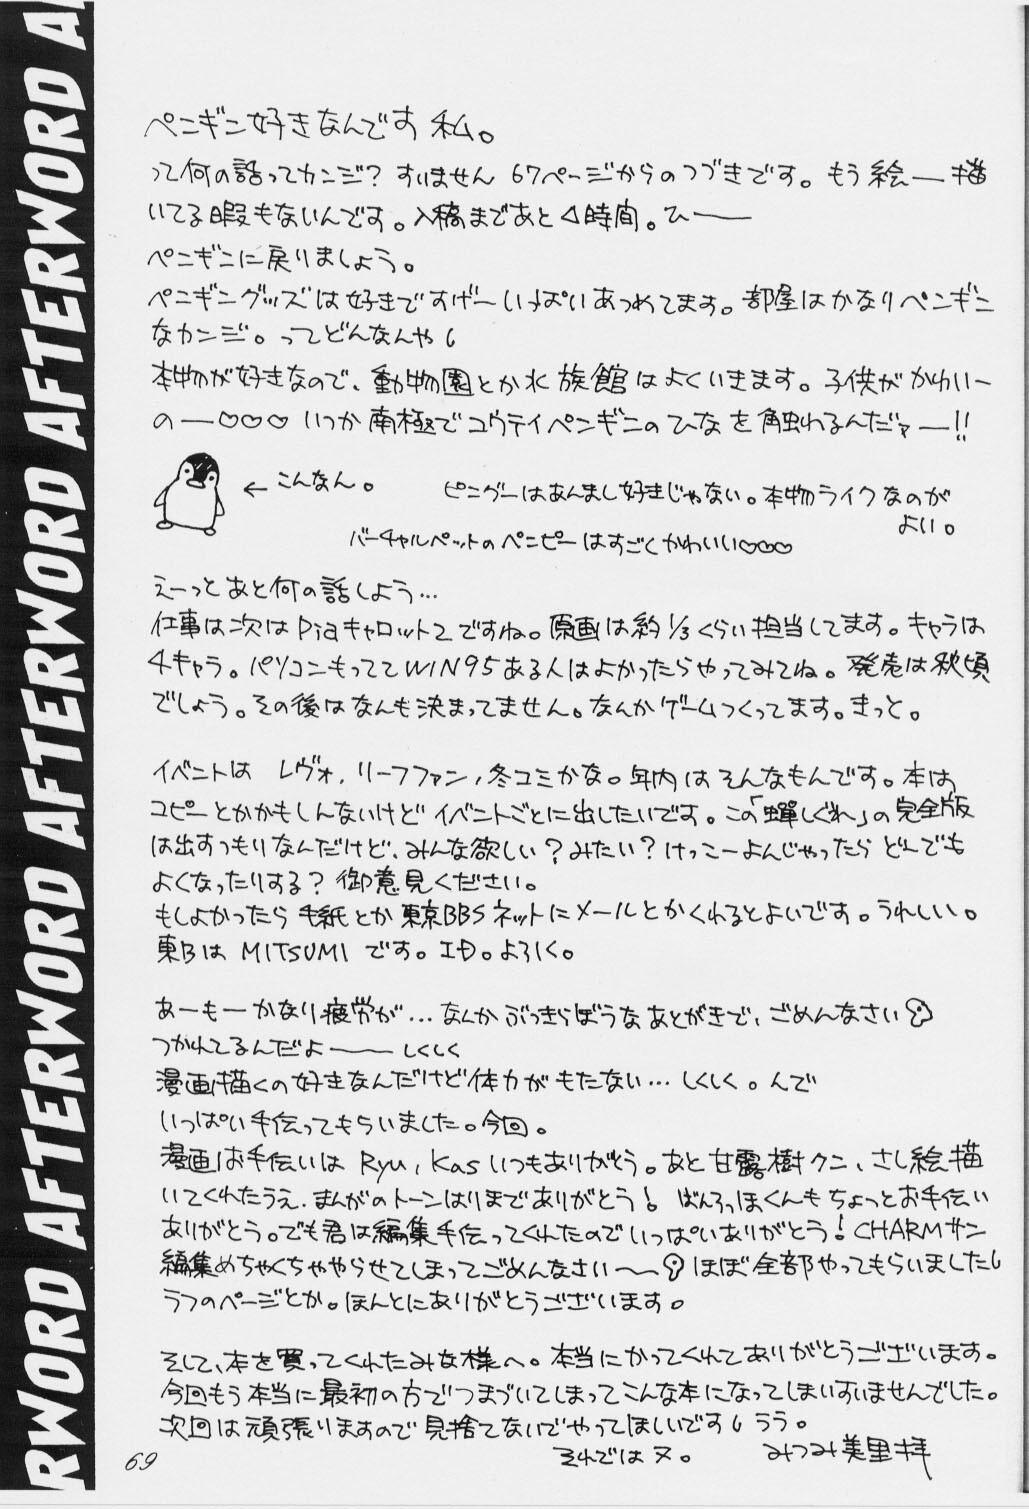 AFTERWORD AFTERWORD AFTERWORD AFTERWORD
ペンギン好きなんです 私。
って何の話ってカンジ? すいません 67ページからのつづきです。もう絵一描
いてる暇もないんです。入稿まであと4時間。ひ——
ペンギンに戻りましょう。
ペンギングッズは好きですげーいっぱいあつめてます。部屋はかなりペンギン
なカンジ。ってどんなんや
本物が好きなので、動物園とか水族館はよくいきます。子供がかわいー
の—♡♡♡ いつか南極でコウテイペンギンのひなを触わるんだァ—!!
← こんなん。
ピングーはあんまし好きじゃない。本物ライクなのが
よい。
バーチャルペットのペンピーはすごくかわいい♡♡♡
えーっとあと何の話しよう…
仕事は次はPiaキャロット2ですね。原画は約1/3くらい担当してます。キャラは
4キャラ。パソコンもっててWIN95ある人はよかったらやってみてね。発売は秋頃
でしょう。その後はなんも決まってません。なんかゲームつくってます。きっと。
イベントは レヴォ,リーフファン,冬コミかな。年内はそんなもんです。本は
コピーとかかもしんないけどイベントごとに出したいです。この「蝉しぐれ」の完全版
は出すつもりなんだけど、みんな欲しい?みたい?けっこーよんじゃったらどーでも
よくなったりする? 御意見ください。
もしよかったら手紙とか東京BBSネットにメールとかくれるとよいです。うれしい。
東BはMITSUMIです。ID。よろしく。
あーもーかなり疲労が…なんかぶっきらぼうなあとがきで、ごめんなさい
つかれてるんだよ—— しくしく
漫画描くの好きなんだけど体力がもたない…しくしく。んで
いっぱい手伝ってもらいました。今回。
漫画お手伝いは Ryu,Kas いつもありがとう。あと甘露樹クン、さし絵描
いてくれたうえ、まんがのトーンはりまでありがとう! ばんろっほくんもちょっとお手伝い
ありがとう。でも君は編集手伝ってくれたのでいっぱいありがとう! CHARMサン
編集めちゃくちゃやらせてしまってごめんなさい〜 ほぼ全部やってもらいました
ラフのページとか。ほんとにありがとうございます。
そして、本を買ってくれたみな様へ。本当にかってくれてありがとうございます。
今回もう本当に最初の方でつまづいてしまってこんな本になってしまいすいませんでした。
次回は頑張りますので見捨てないでやってほしいです うう。
それではヌ。 みつみ美里拝
69